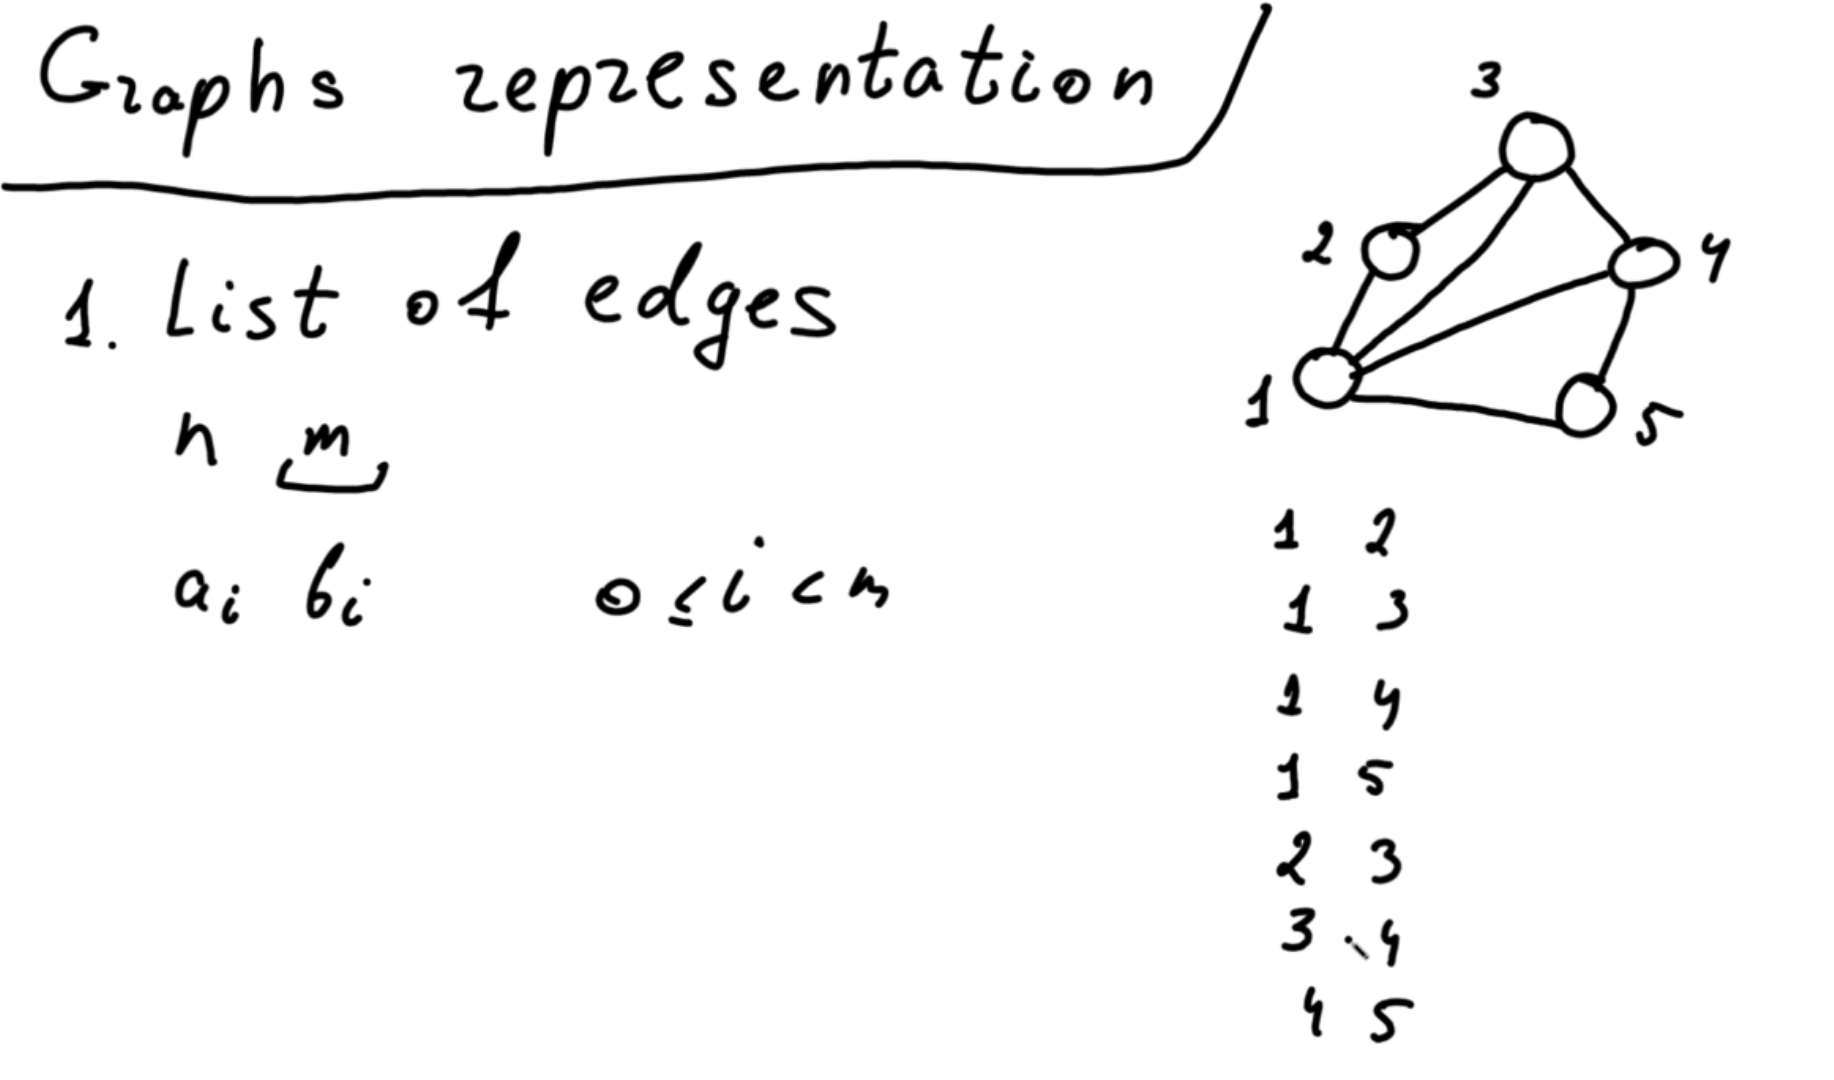 Graphs representation
1. List of edges
n m
aᵢ bᵢ 0 ≤ i < m
3
2
4
1
5
1 2
1 3
1 4
1 5
2 3
3 4
4 5